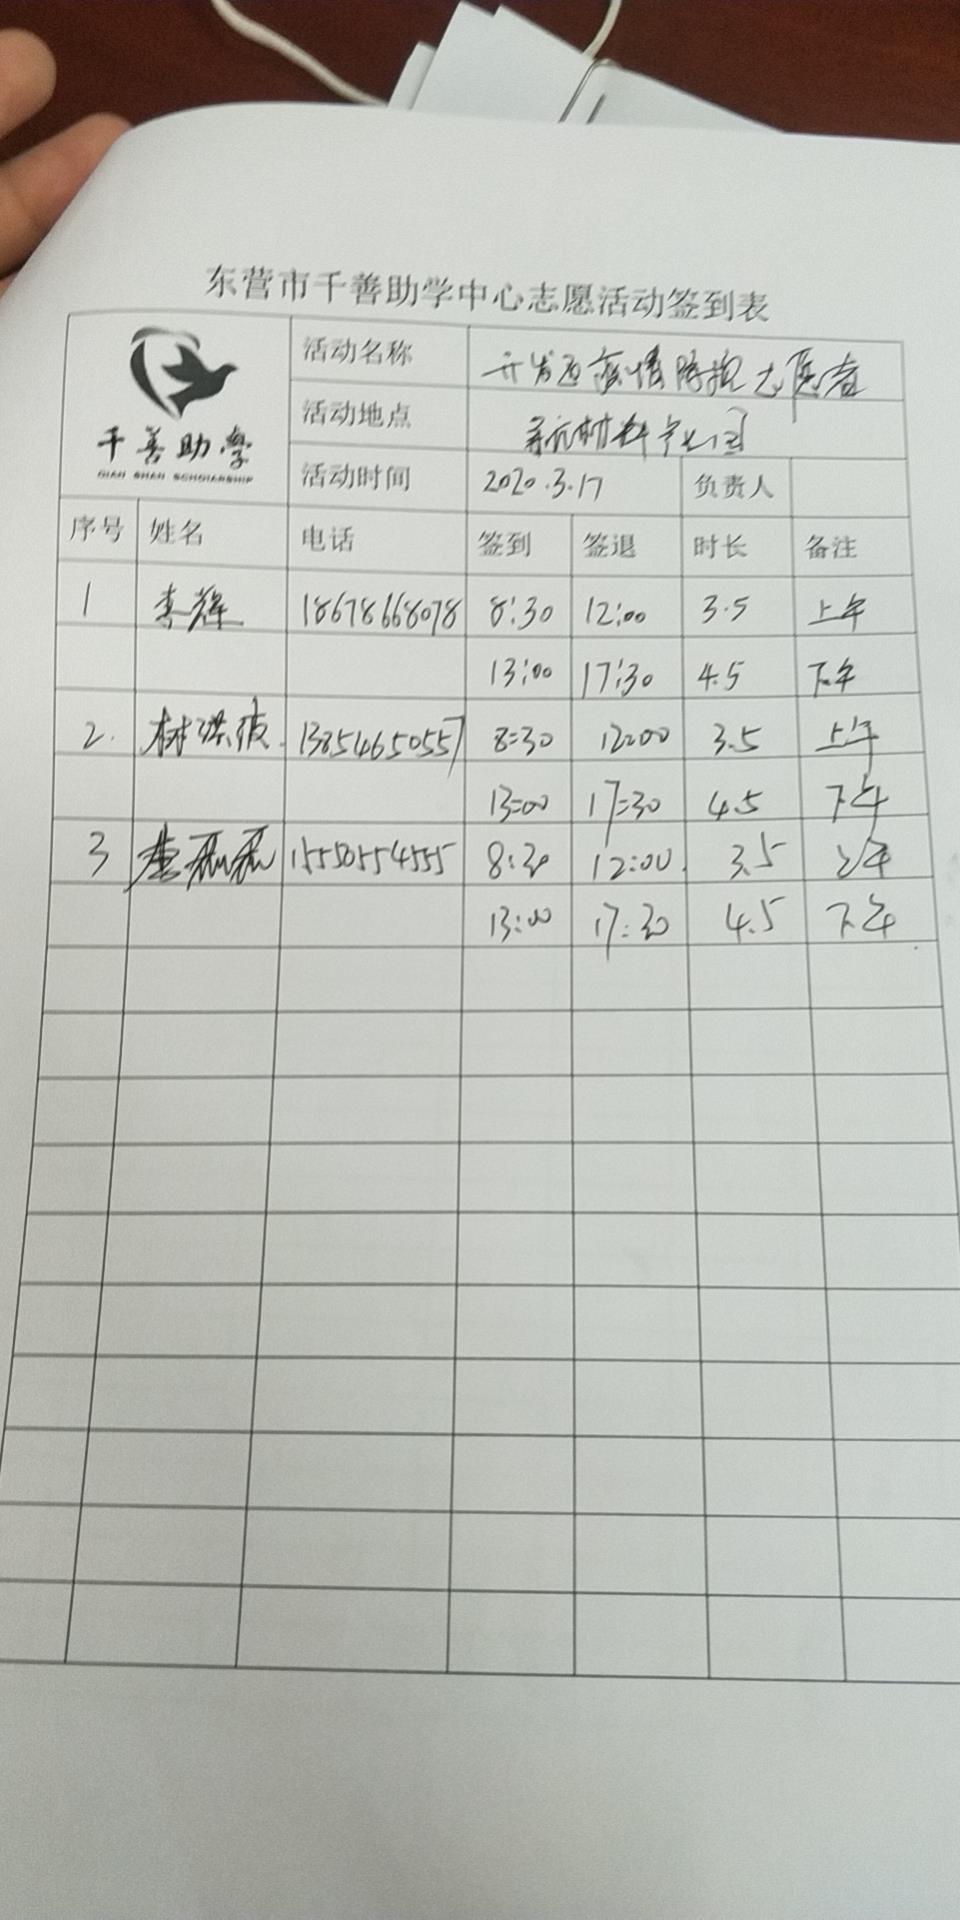 东营市千善助学中心志愿活动签到表
千善助學
QIAN SHAN SCHOLARSHIP
活动名称 开发区疫情防控志愿者
活动地点 材料产业园
活动时间 2020.3.17 负责人
序号 姓名 电话 签到 签退 时长 备注
1 李辉 18678668078 8:30 12:00 3.5 上午
13:00 17:30 4.5 下午
2. 13854650557 8:30 12:00 3.5 上午
13:00 17:30 4.5 下午
3 磊磊 15550554555 8:30 12:00 3.5 上午
13:00 17:30 4.5 下午